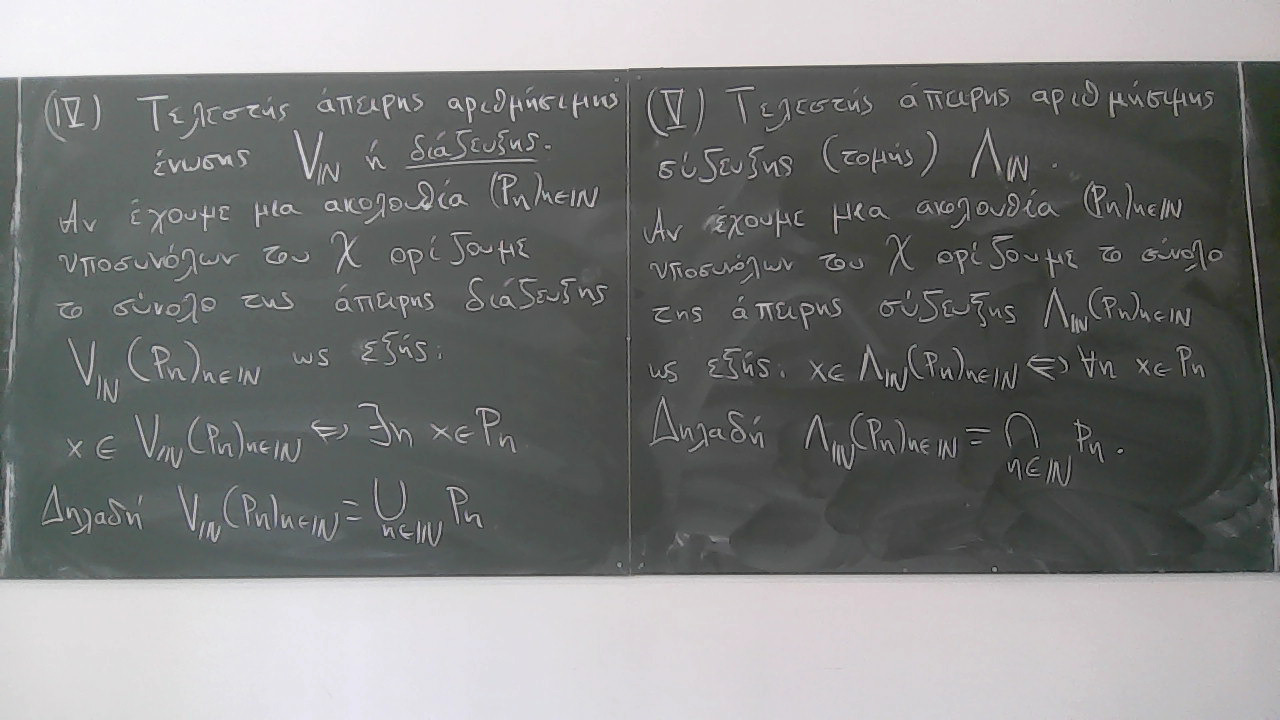 (IV) Τελεστής άπειρης αριθμήσιμης
ένωσης V_ℕ ή διάζευξης.
Αν έχουμε μια ακολουθία (Pn)n∈ℕ
υποσυνόλων του X ορίζουμε
το σύνολο της άπειρης διάζευξης
V_ℕ (Pn)n∈ℕ ως εξής:
x ∈ V_ℕ(Pn)n∈ℕ ⇔ ∃n x∈Pn
Δηλαδή V_ℕ(Pn)n∈ℕ = ⋃n∈ℕ Pn
(V) Τελεστής άπειρης αριθμήσιμης
σύζευξης (τομής) Λ_ℕ.
Αν έχουμε μια ακολουθία (Pn)n∈ℕ
υποσυνόλων του X ορίζουμε το σύνολο
της άπειρης σύζευξης Λ_ℕ(Pn)n∈ℕ
ως εξής: x∈ Λ_ℕ(Pn)n∈ℕ ⇔ ∀n x∈Pn
Δηλαδή Λ_ℕ(Pn)n∈ℕ = ⋂n∈ℕ Pn.